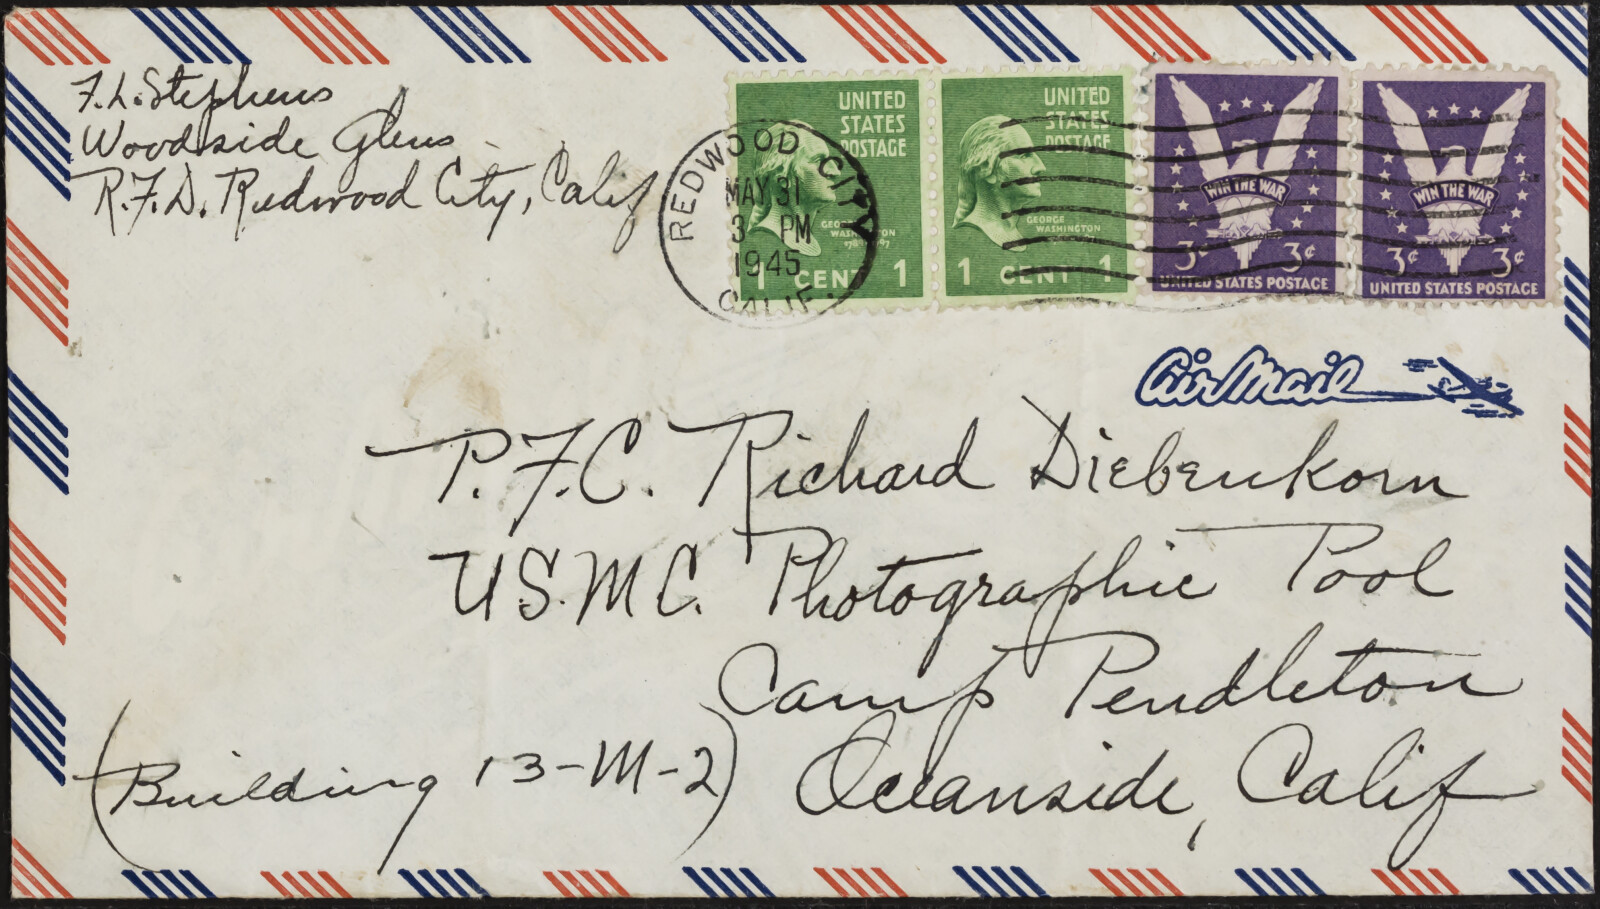 F. L. Stephens
Woodside Glens
R.F.D. Redwood City, Calif
REDWOOD CITY
MAY 31
3 PM
1945
CALIF.
UNITED
STATES
POSTAGE
GEORGE
WASHINGTON
1 CENT 1
UNITED
STATES
POSTAGE
GEORGE
WASHINGTON
1 CENT 1
WIN THE WAR
3¢ 3¢
UNITED STATES POSTAGE
WIN THE WAR
3¢ 3¢
UNITED STATES POSTAGE
Air Mail
P.F.C. Richard Diebenkorn
U.S.M.C. Photographic Pool
Camp Pendleton
(Building 13-M-2) Oceanside, Calif